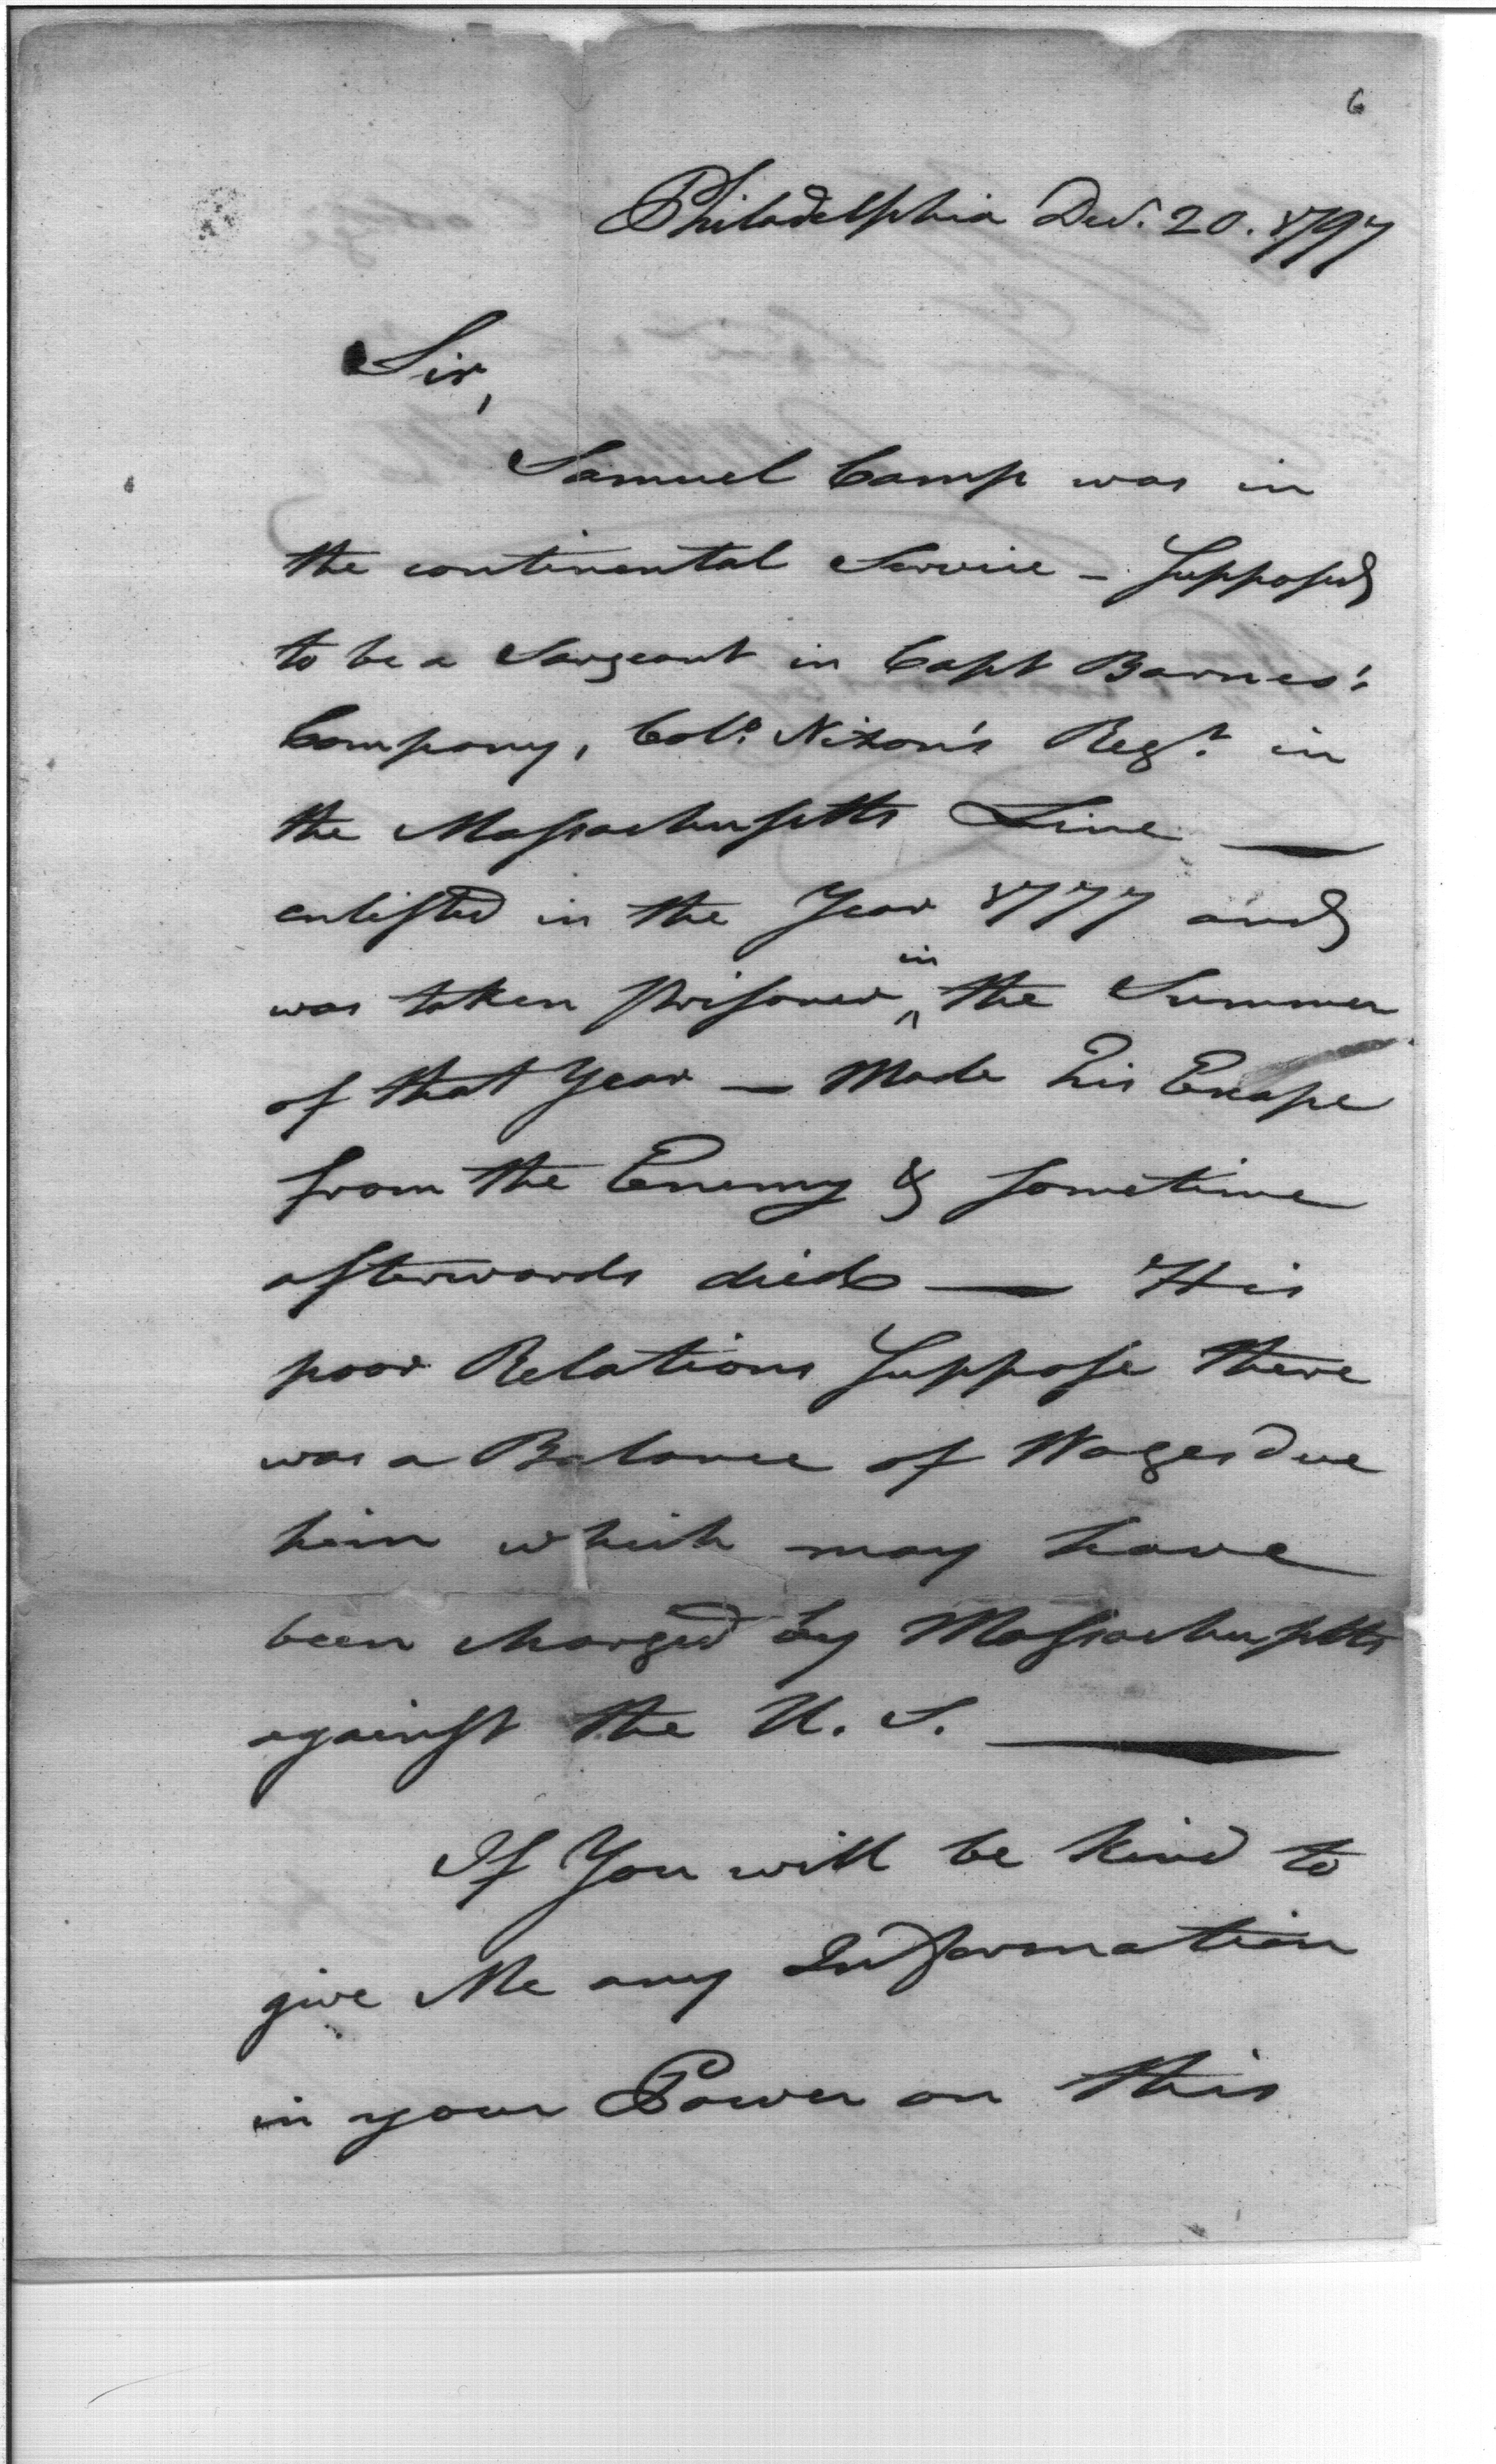 6
Philadelphia Decr. 20. 1797
Sir,
Samuel Camp was in
the continental Service - Supposed
to be a Sargeant in Capt Barnes's
Company, Colo. Nixon's Regt. in
the Massachusetts Line —
enlisted in the Year 1777 and
was taken prisoner in the Summer
of that Year — Made his Escape
from the Enemy & sometime
afterwards died — His
poor Relations Suppose there
was a Balance of Wages due
him which may have
been charged by Massachusetts
against the U. S. —
If You will be kind to
give Me any Information
in your Power on this